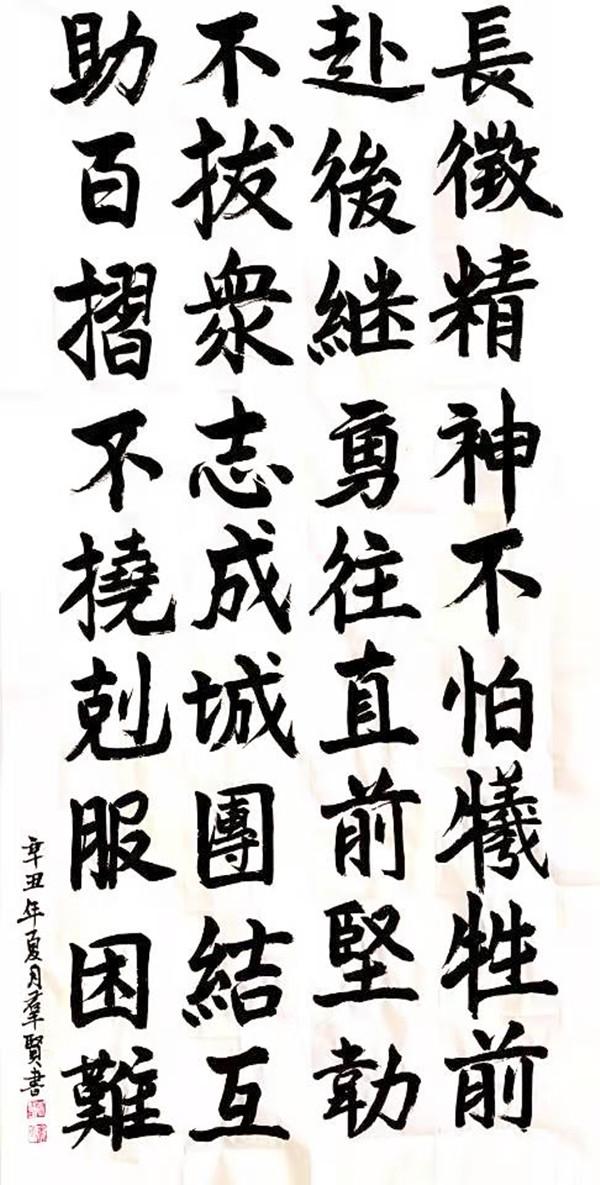 長徵精神不怕犧牲前
赴後継勇往直前堅韌
不拔衆志成城團結互
助百摺不撓剋服困難
辛丑年夏月羣賢書